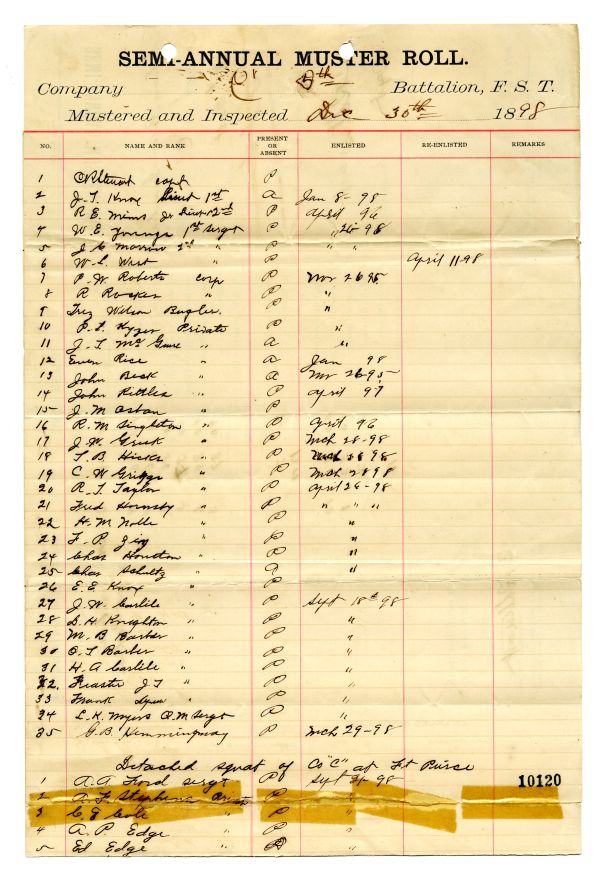 SEMI-ANNUAL MUSTER ROLL.
Company C 5th Battalion, F. S. T.
Mustered and Inspected Dec 30th 1898
NO. NAME AND RANK PRESENT OR ABSENT ENLISTED RE-ENLISTED REMARKS
1 capt P
2 J. T. Knox Lieut 1st a Jan 8-98
3 R E. Mims Jr Lieut 2nd P April 96
4 W. E. Youngs 1st Sergt P " 26-98
5 J. C. Morrow 2nd " P " "
6 W. L. West " P April 11-98
7 P. W. Roberts corp P Mr 26 95
8 R Rocker " P "
9 Wilson Bugler. P "
10 P. L. Kyzer Private P "
11 J. T. Mc " a "
12 Rice " a Jan 98
13 John Beck " a Mr 26-95
14 John " P April 97
15 J. M " P
16 R. M Singleton " P April 96
17 J. W. " P Mch 28-98
18 T. B Hicks " P Mch 28 98
19 C. W Griggs " P Mch 28 98
20 R. T. Taylor " P April 26-98
21 Fred Hornsby " P " " "
22 H. M Nolle " P "
23 F. P. " P "
24 Chas Houston " P "
25 Chas Schultz " a "
26 E. E. Knox " P
27 J. W. Carlile " P Sept 18th 98
28 D. H Knighton " P "
29 M. B Barber " P "
30 O. T Barber " P "
31 H. A Carlile " P "
32. Feaster J. T " P "
33 Frank " P "
34 L. K. Myers Q. M Sergt P "
35 G. B. Hemmingway P Mch 29-98
Detached squat of Co "C" at Ft Pierce
1 A. A. Ford Sergt P Sept 98
10120
2 A. F. Stephens P "
3 C. E Cole " P "
4 A. P. Edge " P "
5 Ed Edge " P "